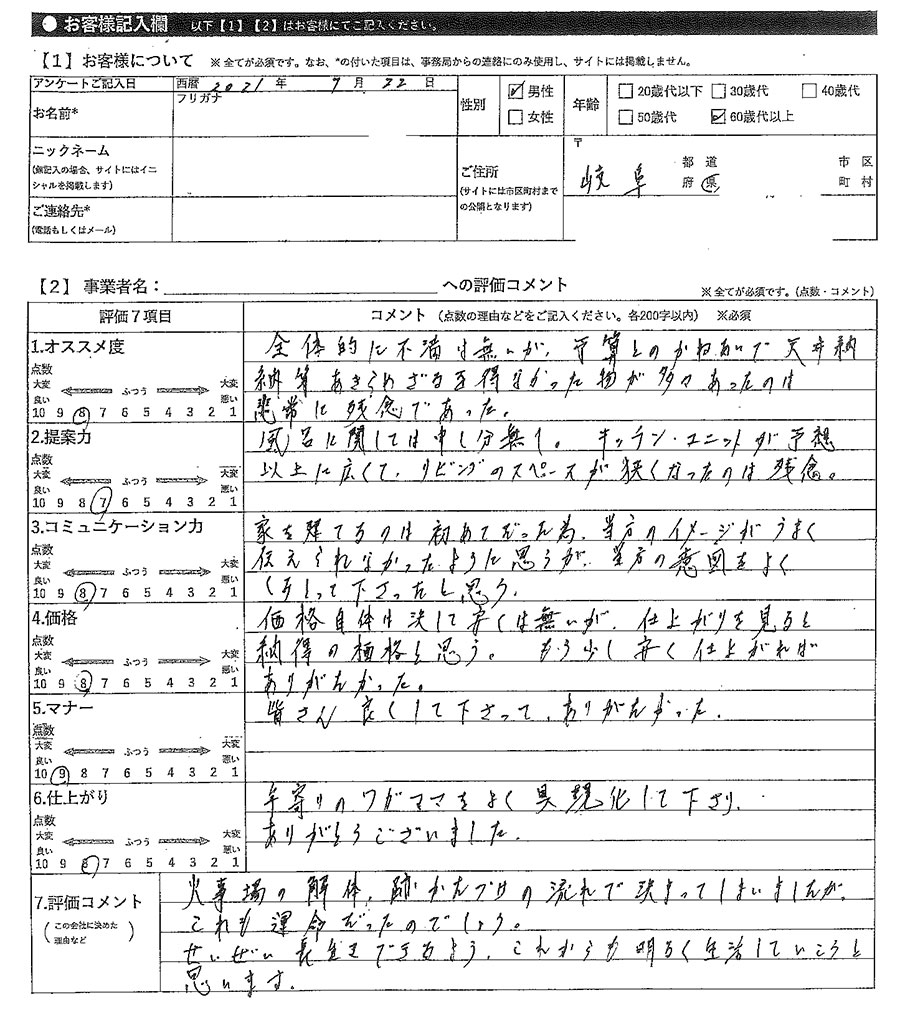 ● お客様記入欄 以下【1】【2】はお客様にてご記入ください。
【1】お客様について ※全てが必須です。なお、*の付いた項目は、事務局からの連絡にのみ使用し、サイトには掲載しません。
アンケートご記入日 西暦 2021 年 7 月 22 日
お名前* フリガナ
性別 ☑男性 □女性
年齢 □20歳代以下 □30歳代 □40歳代
□50歳代 ☑60歳代以上
ニックネーム
(無記入の場合、サイトにはイニ
シャルを掲載します)
ご連絡先*
(電話もしくはメール)
ご住所
(サイトには市区町村まで
の公開となります)
〒
岐阜 都 道 府 県 市 区 町 村
【2】事業者名: への評価コメント ※全てが必須です。(点数・コメント)
評価7項目 コメント (点数の理由などをご記入ください。各200字以内) ※必須
1.オススメ度
点数
大変 ふつう 大変
良い 悪い
10 9 8 7 6 5 4 3 2 1
全体的に不満は無いが、予算とのかねあいで天井納
納等あきらめざるを得なかった物が多々あったのは
非常に残念であった。
2.提案力
点数
大変 ふつう 大変
良い 悪い
10 9 8 7 6 5 4 3 2 1
風呂に関しては申し分無し。キッチン・ユニットが予想
以上に広くて、リビングのスペースが狭くなったのは残念。
3.コミュニケーション力
点数
大変 ふつう 大変
良い 悪い
10 9 8 7 6 5 4 3 2 1
家を建てるのは初めてだった為、当方のイメージがうまく
伝えられなかったように思うが、当方の意図をよく
くみとって下さったと思う。
4.価格
点数
大変 ふつう 大変
良い 悪い
10 9 8 7 6 5 4 3 2 1
価格自体は決して安くは無いが、仕上がりを見ると
納得の価格と思う。もう少し安く仕上がれば
ありがたかった。
5.マナー
点数
大変 ふつう 大変
良い 悪い
10 9 8 7 6 5 4 3 2 1
皆さん良くして下さって、ありがたかった。
6.仕上がり
点数
大変 ふつう 大変
良い 悪い
10 9 8 7 6 5 4 3 2 1
年寄りのワガママをよく具現化して下さり、
ありがとうございました。
7.評価コメント
(この会社に決めた
理由など)
火事場の解体、跡かたづけの流れで決まってしまいましたが、
これも運命だったのでしょう。
せいぜい長生きできるよう、これからも明るく生活していこうと
思います。